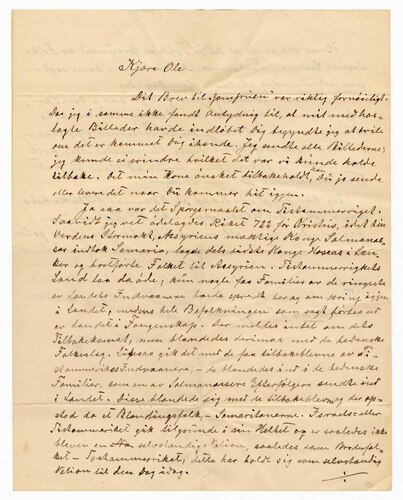 Kjære Ole.
Dit Brev til "Jomfruen" var riktig fornøieligt.
Da jeg i samme ikke fandt Antydning til, at mit med hos-
lagte Billeder havde indløbet Dig begyndte jeg at tvile
om det er kommet Dig ihænde. Jeg sendte alle Billederne;
jeg kunde ei erindre hvilket det var vi kunde holde
tilbake. Det min Kone ønsket tilbakeholdt, kan Du jo sende
eller levere det naar Du kommer hit igjen.
Ja saa var det Spørgsmaalet om Tistammeriget.
Saavidt jeg vet ødelagdes Riket 722 før Kristus, idet hin
Verdens Stormakt, Assyriens mægtige Konge Salmanas-
sar indtok Samaria, lagde dets sidste Konge Hoseas i Læn-
ker og bortførte Folket til Assyrien. Tistammerigets
Land laa da øde; kun nogle faa Familier av de ringeste
av Landets Indvaanere havde spredt
i Landet, medens hele Befolkningen som sagt førtes ud
av Landet i Fangenskap. Der meldes intet om dets
Tilbakekomst, men blandedes derimot med de hedenske
Folkeslag. Ligesaa gik det med de faa tilbakeblevne av Ti-
stammerikes Indvaanere, – de blandedes ind i de hedenske
Familier, som en av Salmanassers Efterfølgere sendte ind
i Landet. Disse blandede sig med de tilbakeblevne og der op-
stod da et Blandingsfolk – Samaritanerne. Israels eller
Tistammeriket gik tilgrunde i sin Helhet og er saaledes ikke
bleven en selvstændig Nation, saaledes som Brodefol-
ket – Tostammeriket, dette har holdt sig som selvstændig
Nation til den Dag idag.